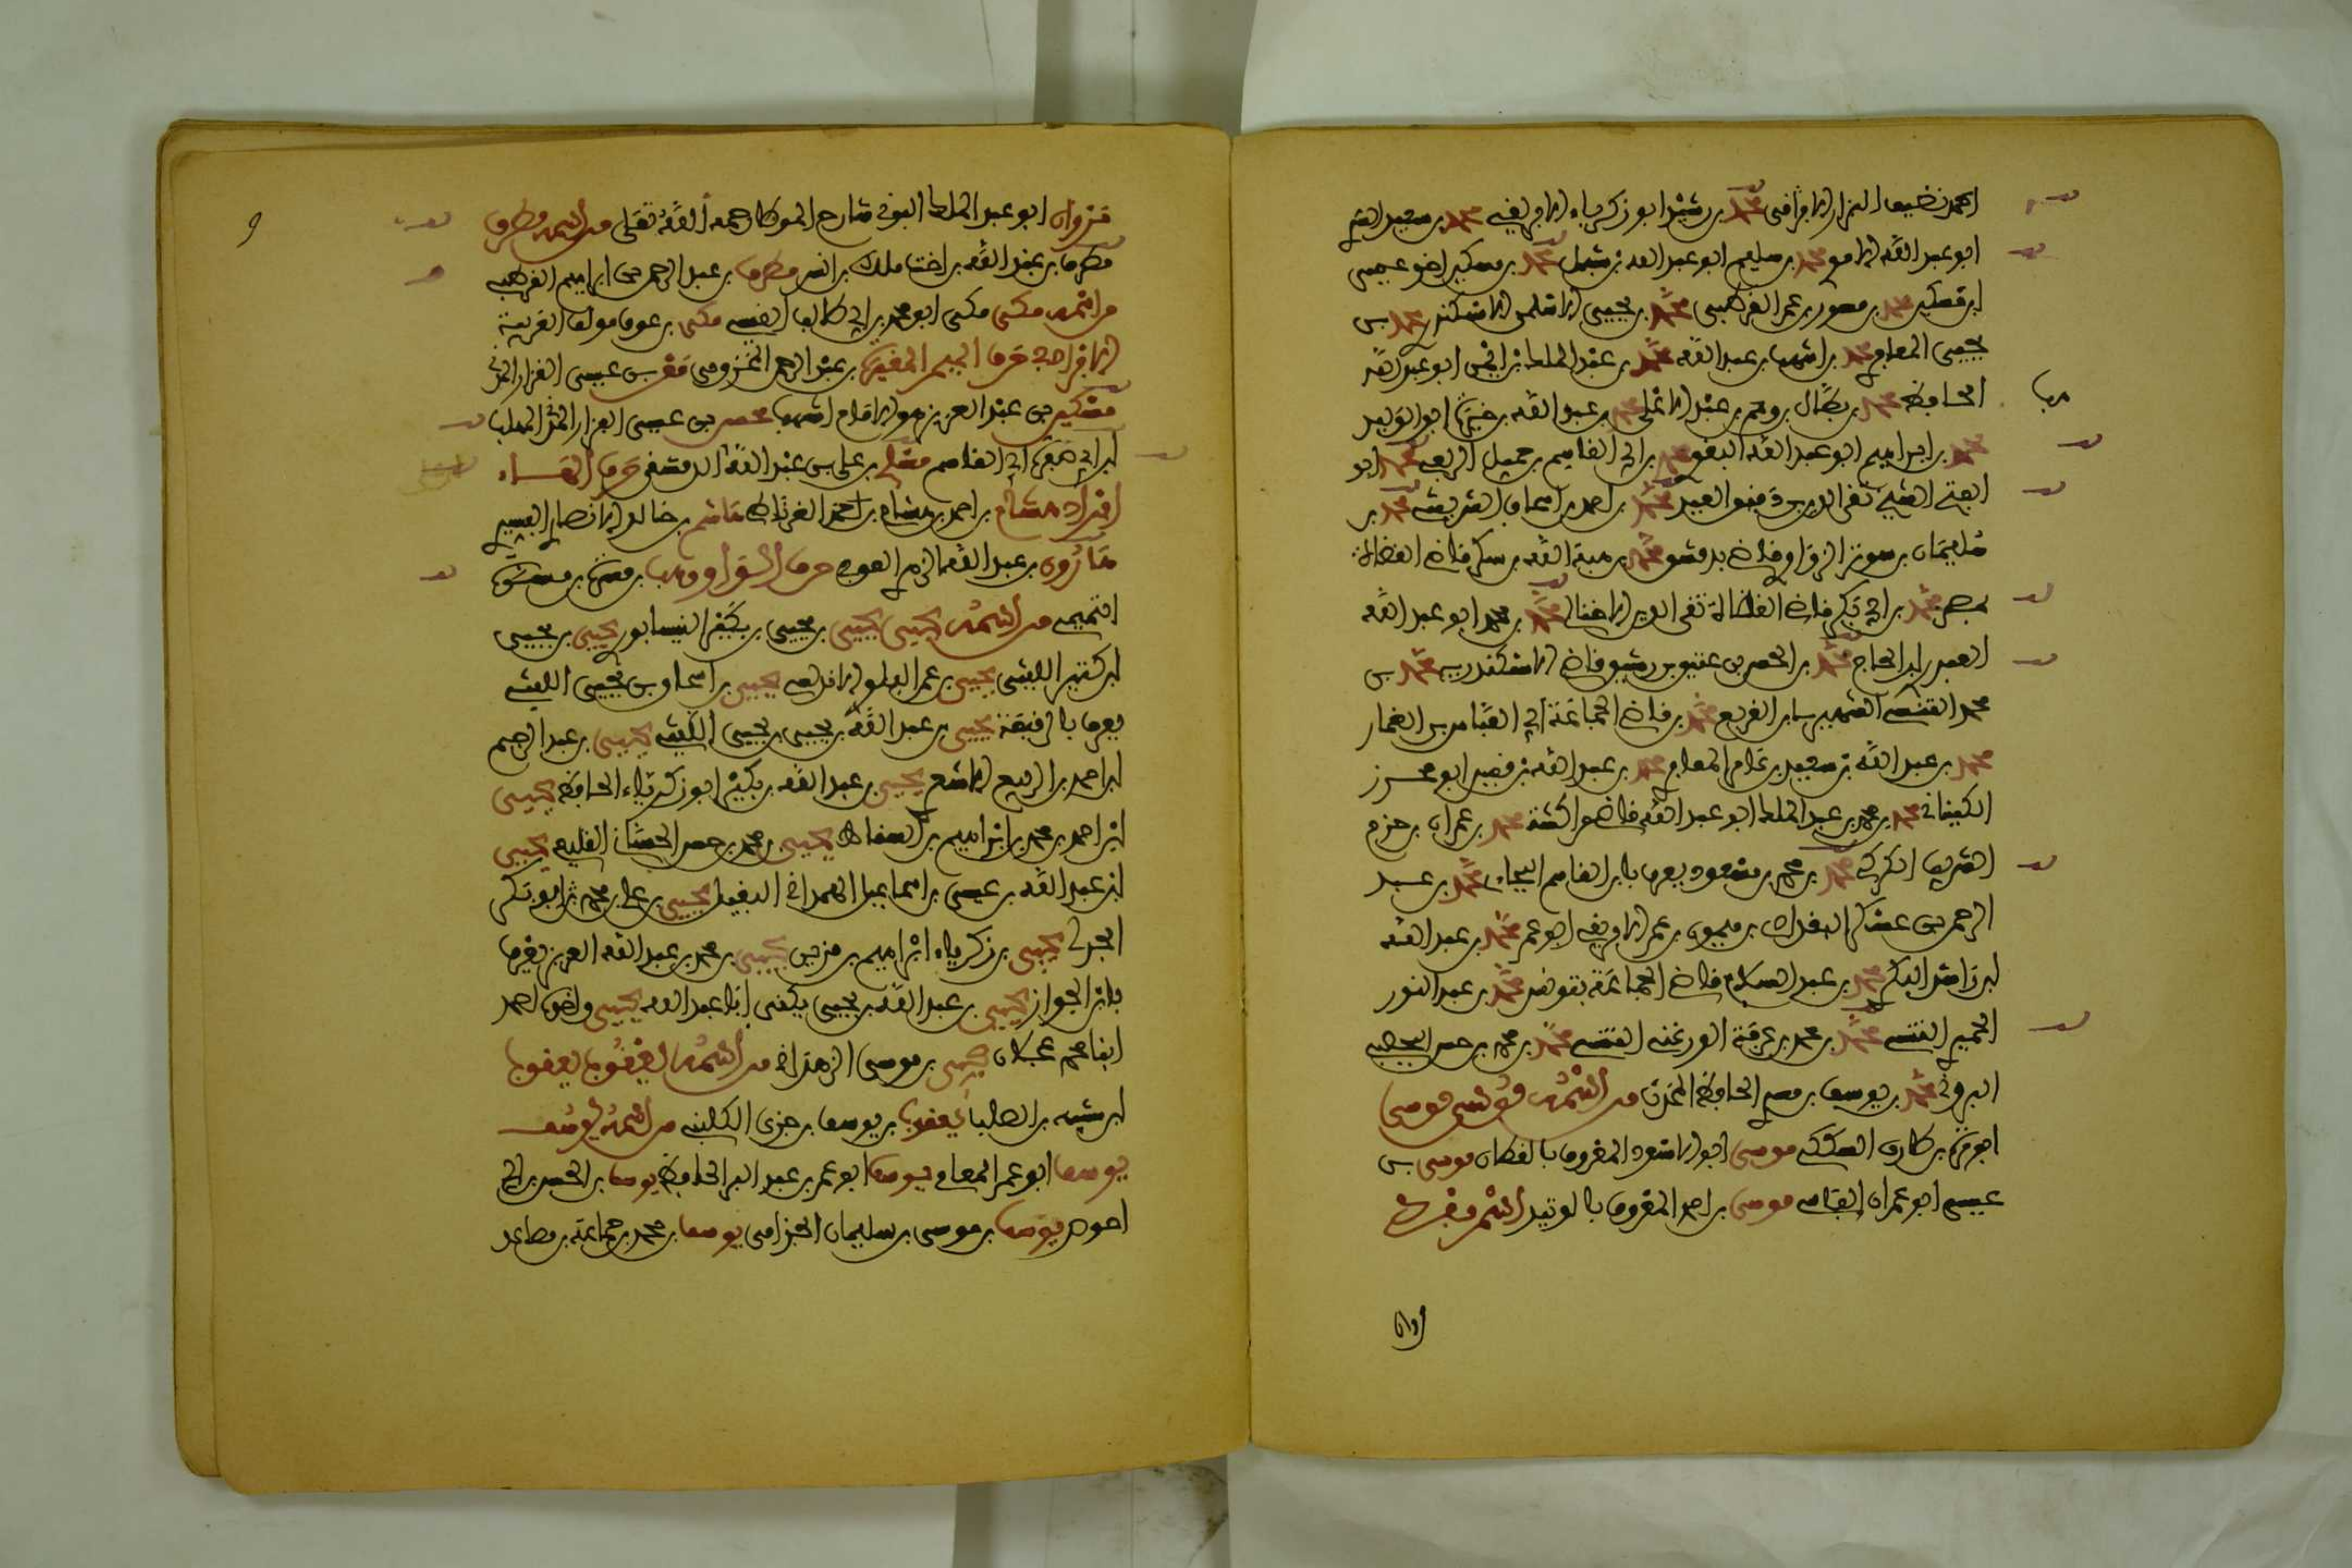 احمد نظيف البزار الافراقي محمد بن رشيد ابو زكرياء الافريقي محمد بن سعيد القيم
ابو عبد الله الاموي محمد بن سليم ابو عبد الله بن شبل محمد بن مسكين اخو عيسى
ابن مسكين محمد بن منصور بن عمر القرطبي محمد بن يحيى الاسلمي الاسكندري محمد بن
يحيى المعافري محمد بن اشهب بن عبد الله محمد بن عبد الملك بن ايمن ابو عبد الله
الحافظ محمد بن بطال بن وهب بن عبد الاعلى محمد بن عبد الله بن خيرة ابو الوليد
محمد بن ابراهيم ابو عبد الله البقوري محمد بن ابي القاسم بن جميل الربعي محمد ابو
الفتح القشيري تقي الدين بن دقيق العيد محمد بن احمد بن اسحاق الشريشي محمد بن
سليمان بن سومر الزواوي قاضي بدمشق محمد بن هبة الله بن سكر قاضي القضاة
بمصر محمد بن ابي بكر قاضي القضاة تقي الدين الاخنائي محمد بن محمد ابو عبد الله
العبدري ابن الحاج محمد بن الحسن بن عتيق بن رشيق قاضي الاسكندرية محمد بن
محمد التنسي الشهير بابن القوبع محمد بن قاضي الجماعة ابي العباس بن الغماز
محمد بن عبد الله بن سعيد بن عابد المعافري محمد بن عبد الله بن قيس ابو محرز
الكناني محمد بن محمد بن عبد الملك ابو عبد الله قاضي مراكش محمد بن عمران بن حزم
الشريف الكركي محمد بن محمد بن مسعود يعرف بابن القاسم البجاءي محمد بن عبد
الرحمن بن عسكر البغدادي بن ميمون بن عمر الافريقي ابو عمر محمد بن عبد الله
ابن راشد البكري محمد بن عبد السلام قاضي الجماعة بتونس محمد بن عبد النور
الحميري التونسي محمد بن محمد بن عرفة الورغمي التونسي محمد بن محمد بن حسن اليحصبي
البروني محمد بن يوسف بن مسدي الحافظ المحدث من اسمه موسى موسى
ابو قرة بن طارق السكسكي موسى ابو الاسود المعروف بالقطان موسى بن
عيسى ابو عمران الفاسي موسى بن احمد المعروف بالوتد اسم مفرد
مروان
مروان ابو عبد الملك البوني شارح الموطا رحمه الله تعلى من اسمه مطرف
مطرف بن عبد الله بن اخت مالك بن انس مطرف بن عبد الرحمن بن ابراهيم القرطبي
من اسمه مكي مكي ابو محمد بن ابي طالب القيسي مكي بن عوف مولف العوفية
الافراد في حرف الميم المغيرة بن عبد الرحمن المخزومي معن بن عيسى القزاز المدني
مسكين بن عبد العزيز هو الامام اشهب محسن بن عيسى البزار المدني المهلب
ابن ابي صفرة ابي القاسم مسلم بن علي بن عبد الله الدمشقي حرف الهاء
افراد هشام بن احمد بن هشام بن احمد الغرناطي هاشم بن خالد الانصاري البيري
هارون بن عبد الله الزهري العوفي حرف الواو وهب بن مسرة بن مسرة
التميمي من اسمه يحيى يحيى بن يحيى بن بكير النيسابوري يحيى بن يحيى
ابن كثير الليثي يحيى بن عمر البلوي الاندلسي يحيى بن اسحاق بن يحيى الليثي
يعرف بالرقيقة يحيى بن عبد الله بن يحيى بن يحيى الليثي يحيى بن عبد الرحيم
ابن احمد بن الربيع الاشعري يحيى بن عبد الله بن بكير ابو زكرياء الحافظ يحيى
ابن احمد بن محمد بن ابراهيم بن الصفار يحيى بن محمد بن حسن الغساني القليعي يحيى
ابن عبد الله بن عيسى بن اسماعيل الهمداني البغيل يحيى بن علي بن محمد ابو بكر
الجدلي يحيى بن زكرياء ابراهيم بن مزين يحيى بن محمد بن عبد الله العزيز يعرف
بابن الجزار يحيى بن عبد الله بن يحيى يكنى ابا عبد الله يحيى واخوه احمد
ابنا محمد عجلان يحيى بن موسى الرهوني من اسمه يعقوب يعقوب
ابن شيبة بن الصلت يعقوب بن يوسف بن جزي الكلبي من اسمه يوسف
يوسف ابو عمر المغامي يوسف ابو عمر بن عبد البر الحافظ يوسف بن الحسن بن ابي
احوص يوسف بن موسى بن سليمان الجذامي يوسف بن محمد بن جماعة بن مصامد